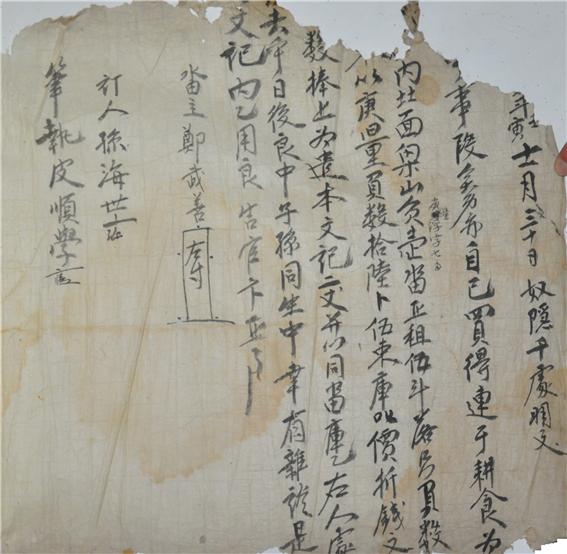 寅 月三十日 奴隱千處明文
事段矣 亦自己買得連于耕食爲
內北面梁山員 畓正租伍斗落只負數
字七
以庚 負數拾陸卜伍束庫叱價折錢文
數捧上爲遣本文記一丈幷以同畓庫乙右人處
去乎日後良中子孫同生中幸有雜談是
文記內乙用良告官卞正事
畓主鄭武善
左寸
訂人孫海世
筆執皮順學